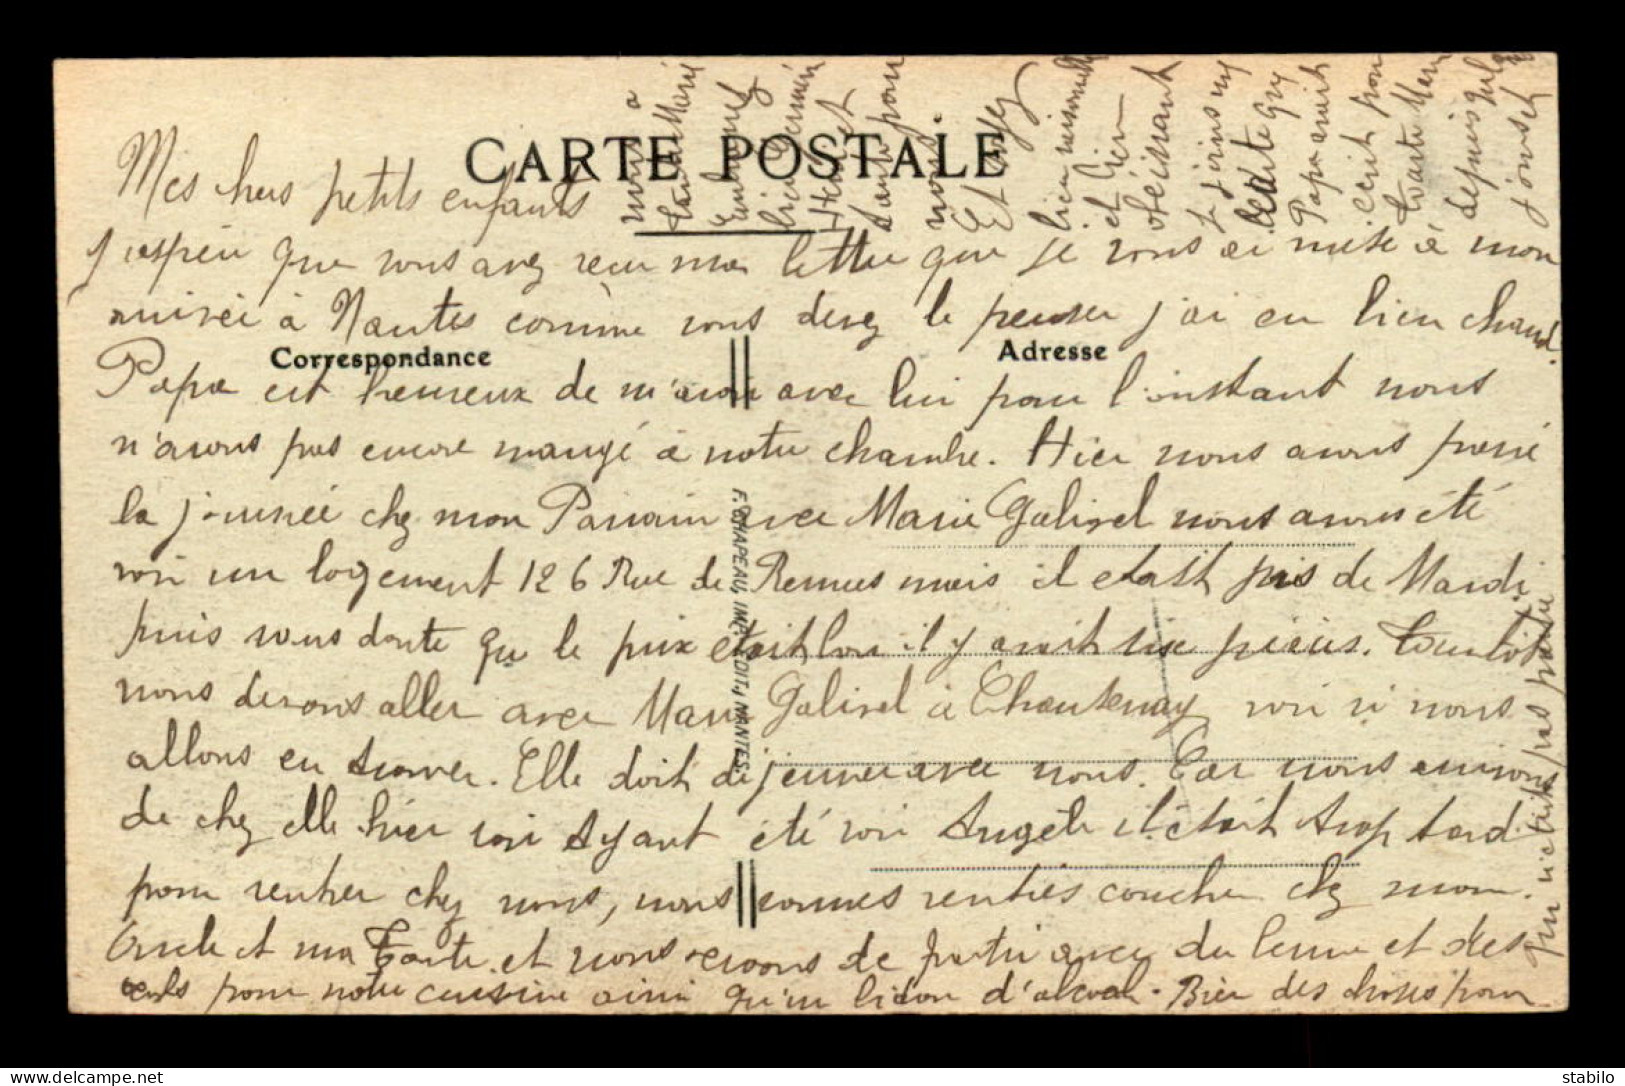 CARTE POSTALE
Mes chers petits enfants
J'espère que vous avez reçu ma lettre que je vous ai mise à mon
arrivée à Nantes comme vous devez le penser j'ai eu bien chaud.
Correspondance
Adresse
Papa est heureux de m'avoir avec lui pour l'instant nous
n'avons pas encore mangé à notre chambre. Hier nous avons passé
la journée chez mon Parrain avec Marie Galivel nous avons été
voir un logement 126 Rue de Rennes mais il etait pris de Mardi
puis sans doute que le prix etait bon il y avait six pièces. Tantôt
nous devons aller avec Marie Galivel à Chantenay voir si nous
allons en trouver. Elle doit déjeuner avec nous. Car nous arrivons
de chez elle hier soir Ayant été voir Angèle il était trop tard
pour rentrer chez nous, nous sommes rentrés coucher chez mon
Oncle et ma Tante. et nous venons de partir avec du beurre et des
œufs pour notre cuisine ainsi qu'un bidon d'alcool. Bien des choses pour
vous à
Tante Marie
Embrassez
bien Germaine
Henri et
Tante pour
nous.
Et soyez
bien mignonne
et bien
obéissante
Je joins un
carte Guy
Papa avait
écrit pour
Tante Marie
depuis
F. CHAPEAU, IMP. EDIT., NANTES.